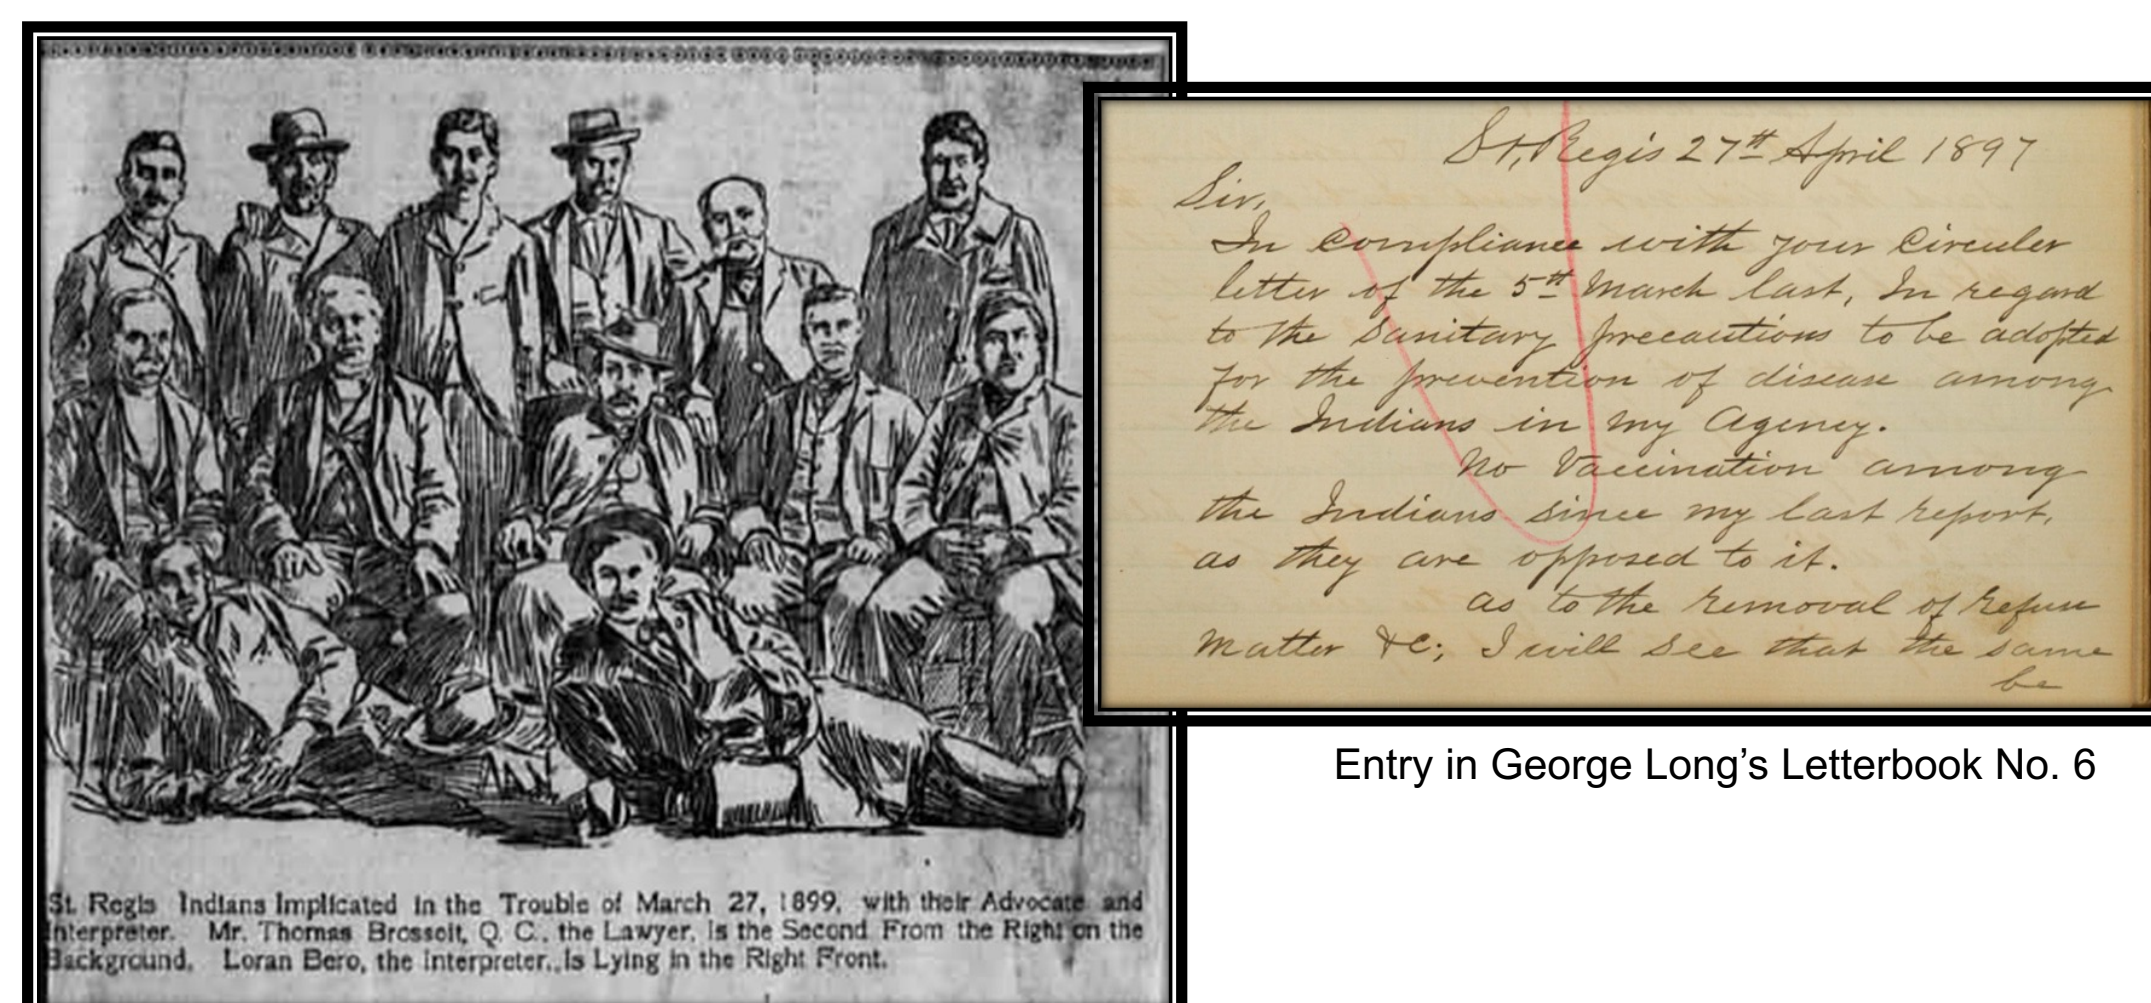 St. Regis Indians Implicated in the Trouble of March 27, 1899, with their Advocate and
Interpreter. Mr. Thomas Brossoit, Q. C., the Lawyer, is the Second From the Right on the
Background. Loran Bero, the Interpreter, is Lying in the Right Front.
St. Regis 27th April 1897
Sir,
In compliance with your Circuler
letter of the 5th March last, In regard
to the Sanitary precautions to be adopted
for the prevention of disease among
the Indians in my Agency.
No Vaccination among
the Indians since my last report,
as they are opposed to it.
as to the removal of refuse
matter &c; I will see that the same
be
Entry in George Long’s Letterbook No. 6